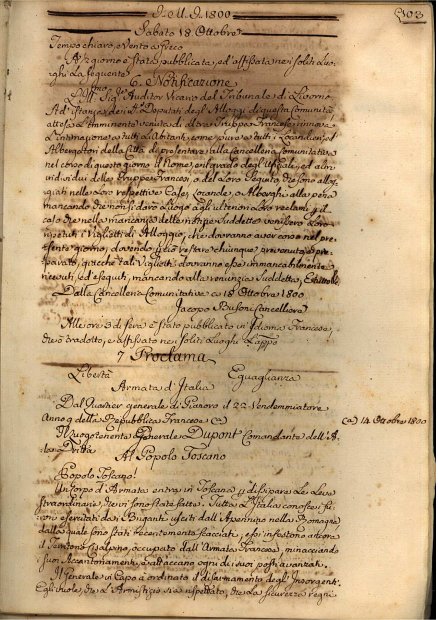 I. M. I. 1800
103
Sabato 18 Ottobre
Tempo chiaro, e Vento a fresco
A di giorno è stata pubblicata, ed affissata nei soliti Luo-
ghi La seguente
6. Notificazione
Sigre Auditor Vicario del Tribunale di Livorno
Ad istanza dei Deputati degli Alloggi di questa Comunità
attesa L'imminente venuta di altre Truppe Francesi
L'intenzione a tutti Li Abitanti, come pure a tutti i Locandieri, ed
Albergatori della Città di presentare alla Cancelleria Comunitativa
nel corso di questo giorno Il Nome, ed il grado degli Ufiziali, ed altri in-
dividui delle Truppe Francesi, o del Loro Seguito, che sono allog-
giati nelle Loro respettive Case, Locande, o Alberghi alla pena
mancando che non si darà Luogo agli ulteriori Loro reclami
caso che nella mancanza delle notizie Suddette venissero Loro
i Viglietti di Alloggio, che dovranno aver corso nel pre-
sente giorno, dovendo
giacche tali Viglietti dovranno esse immancabilmente
ricevuti ed eseguiti, mancando alla renunzia Suddetta
Dalla Cancelleria Comunitativa a 18 Ottobre 1800
Jacopo Busoni Cancelliere
Alle ore 3 di sera è stato pubblicato in Idioma Francese,
che è tradotto, e affissato nei soliti Luoghi
7 Proclama
Libertà Eguaglianza
Armata d'Italia
Dal Quartier generale di Pianoro il 22 Vendemmiatore
Anno 9 della Repubblica Francese (a)
(a) 14 Ottobre 1800
Il Luogotenente Generale Dupont Comandante dell'A-
la Dritta
Al Popolo Toscano
Popolo Toscano!
Un Corpo d'Armata entra in Toscana p dissipare Le Leve
straordinarie che vi sono state fatte. Tutta L'Italia conosce i fu-
rori esercitati da i Briganti usciti dall'Apennino nella Romagna
dalla quale sono stati recentemente scacciati, essi infestano ancora
il Territorio Cisalpino, occupato dall'Armata Francese, minacciando
i suoi Accantonamenti, e attaccano ogni dì i suoi posti avanzati.
Il Generale in Capo à ordinato il disarmamento degl'Insorgenti.
Egli vuole, che L'Armistizio sia rispettato, che La sicurezza regni